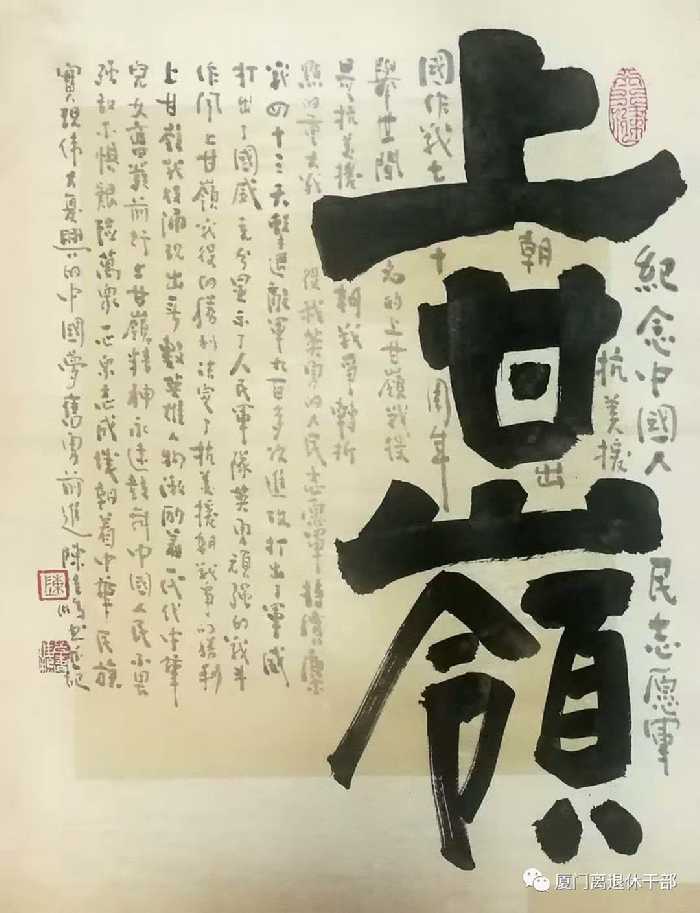 上甘嶺
紀念中國人民志愿軍
抗美援
朝出
國作戰七十周年
舉世聞名的上甘嶺戰役
是抗美援朝戰爭轉折
點的重大戰役我英勇的人民志愿軍持續鏖
戰四十三天擊退敵軍九百多次進攻打出了軍威
打出了國威充分显示了人民軍隊英勇頑强的戰斗
作風上甘嶺戰役的勝利决定了抗美援朝戰争的勝利
上甘嶺戰役涌現出無數英雄人物激励着一代代中華
兒女奮勇前行上甘嶺精神永遠鼓舞中國人民不畏
强敌不懼艱險萬衆一心衆志成城朝着中華民族
實現偉大复興的中國夢奮勇前進陳书並記
陳
厦门离退休干部